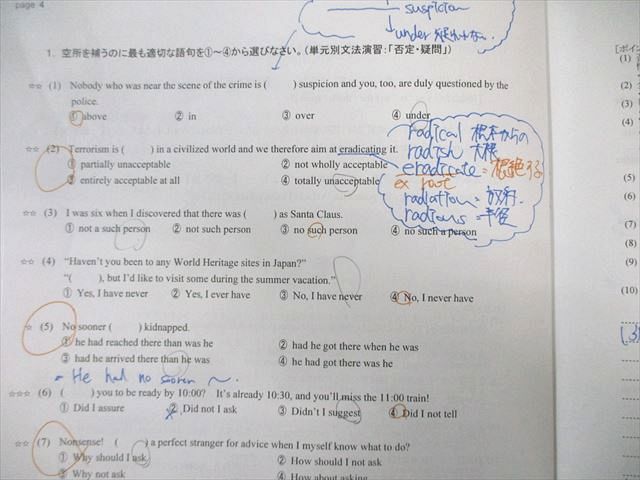 page 4
suspicion
under
1. 空所を補うのに最も適切な語句を①~④から選びなさい。(単元別文法演習:「否定・疑問」)
☆☆ (1) Nobody who was near the scene of the crime is ( ) suspicion and you, too, are duly questioned by the
police.
① above ② in ③ over ④ under
☆☆ (2) Terrorism is ( ) in a civilized world and we therefore aim at eradicating it.
① partially unacceptable ② not wholly acceptable
③ entirely acceptable at all ④ totally unacceptable
radical 根本からの
radish 大根
eradicate = 根絶する
ex root
radiation = 放射.
radious = 半径
☆☆ (3) I was six when I discovered that there was ( ) as Santa Claus.
① not a such person ② not such person ③ no such person ④ no such a person
☆☆ (4) “Haven't you been to any World Heritage sites in Japan?”
“( ), but I'd like to visit some during the summer vacation.”
① Yes, I have never ② Yes, I ever have ③ No, I have never ④ No, I never have
☆ (5) No sooner ( ) kidnapped.
① he had reached there than was he ② had he got there when he was
③ had he arrived there than he was ④ he had got there was he
= He had no sooner ~.
☆☆☆ (6) ( ) you to be ready by 10:00? It's already 10:30, and you'll miss the 11:00 train!
① Did I assure ② Did not I ask ③ Didn't I suggest ④ Did I not tell
☆☆ (7) Nonsense! ( ) a perfect stranger for advice when I myself know what to do?
① Why should I ask ② How should I not ask
③ Why not ask ④ How about asking
[ポイン
(1)
(2)
(3)
(4)
(5)
(6)
(7)
(8)
(9)
(10)